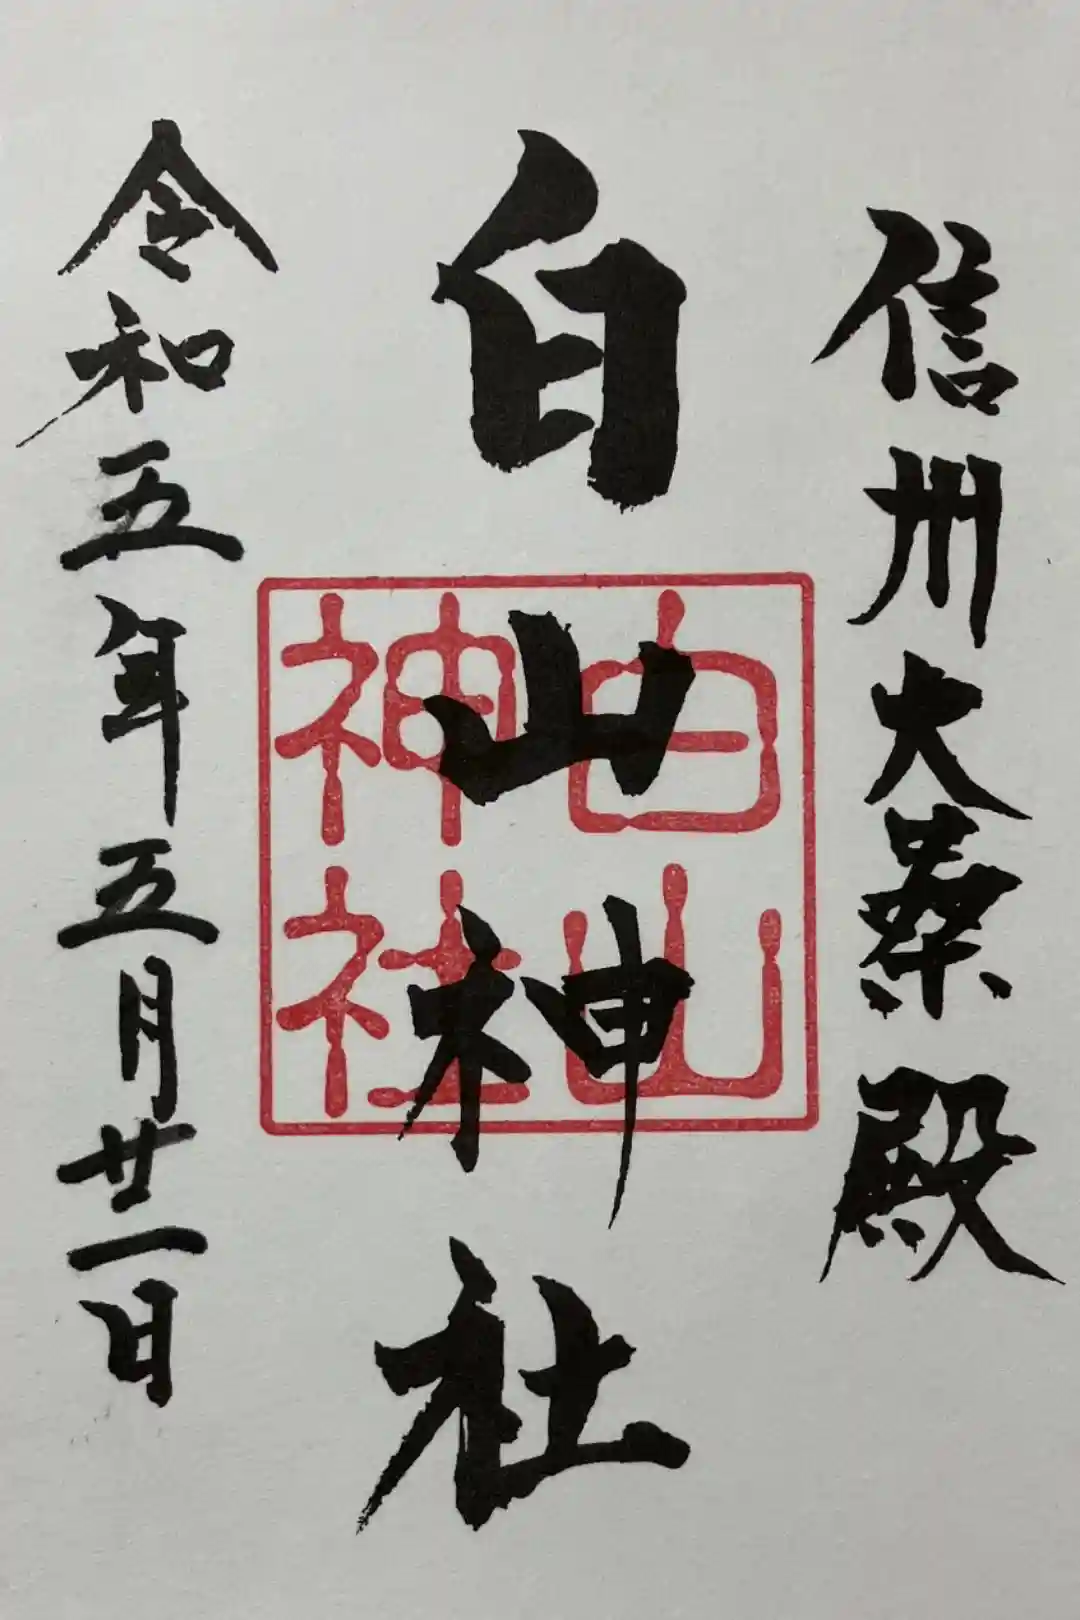 信州大桒殿
白山神社
白山
神社
令和五年五月廿一日